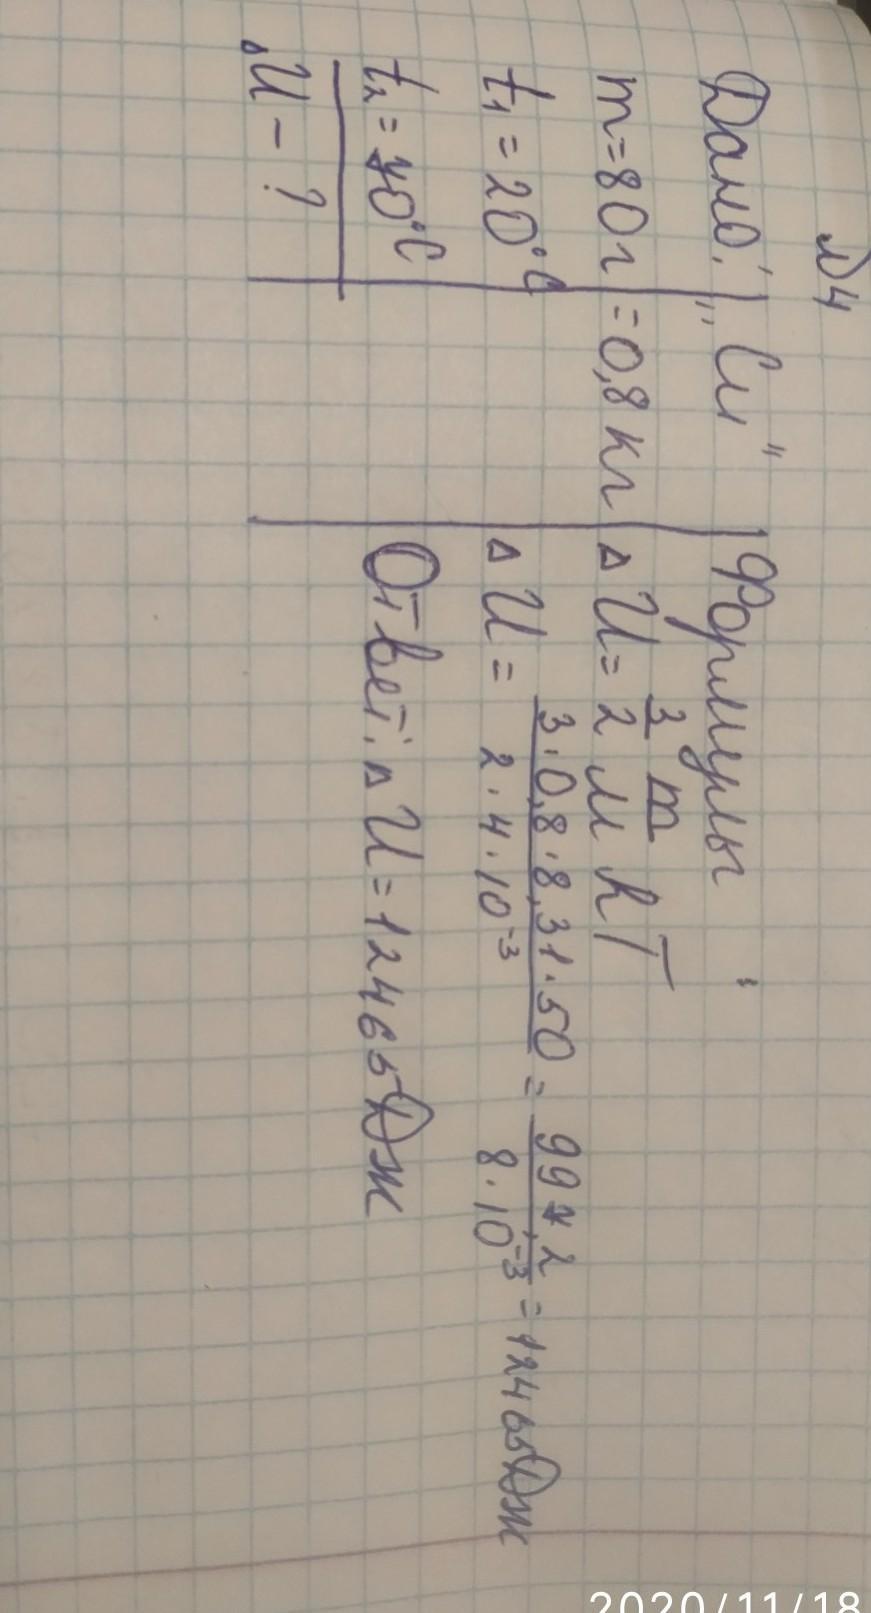 №4
Дано: | "Си" | Формулы:
m=80г | =0,8 кг | ΔU= 3/2 m/M RT
t₁=20°C
ΔU = 3·0,8·8,31·50 / 2·4·10⁻³ = 99,2 / 8·10⁻³ = 12465Дж
t₂=70°C
Ответ: ΔU=12465Дж
ΔU-?
2020/11/18